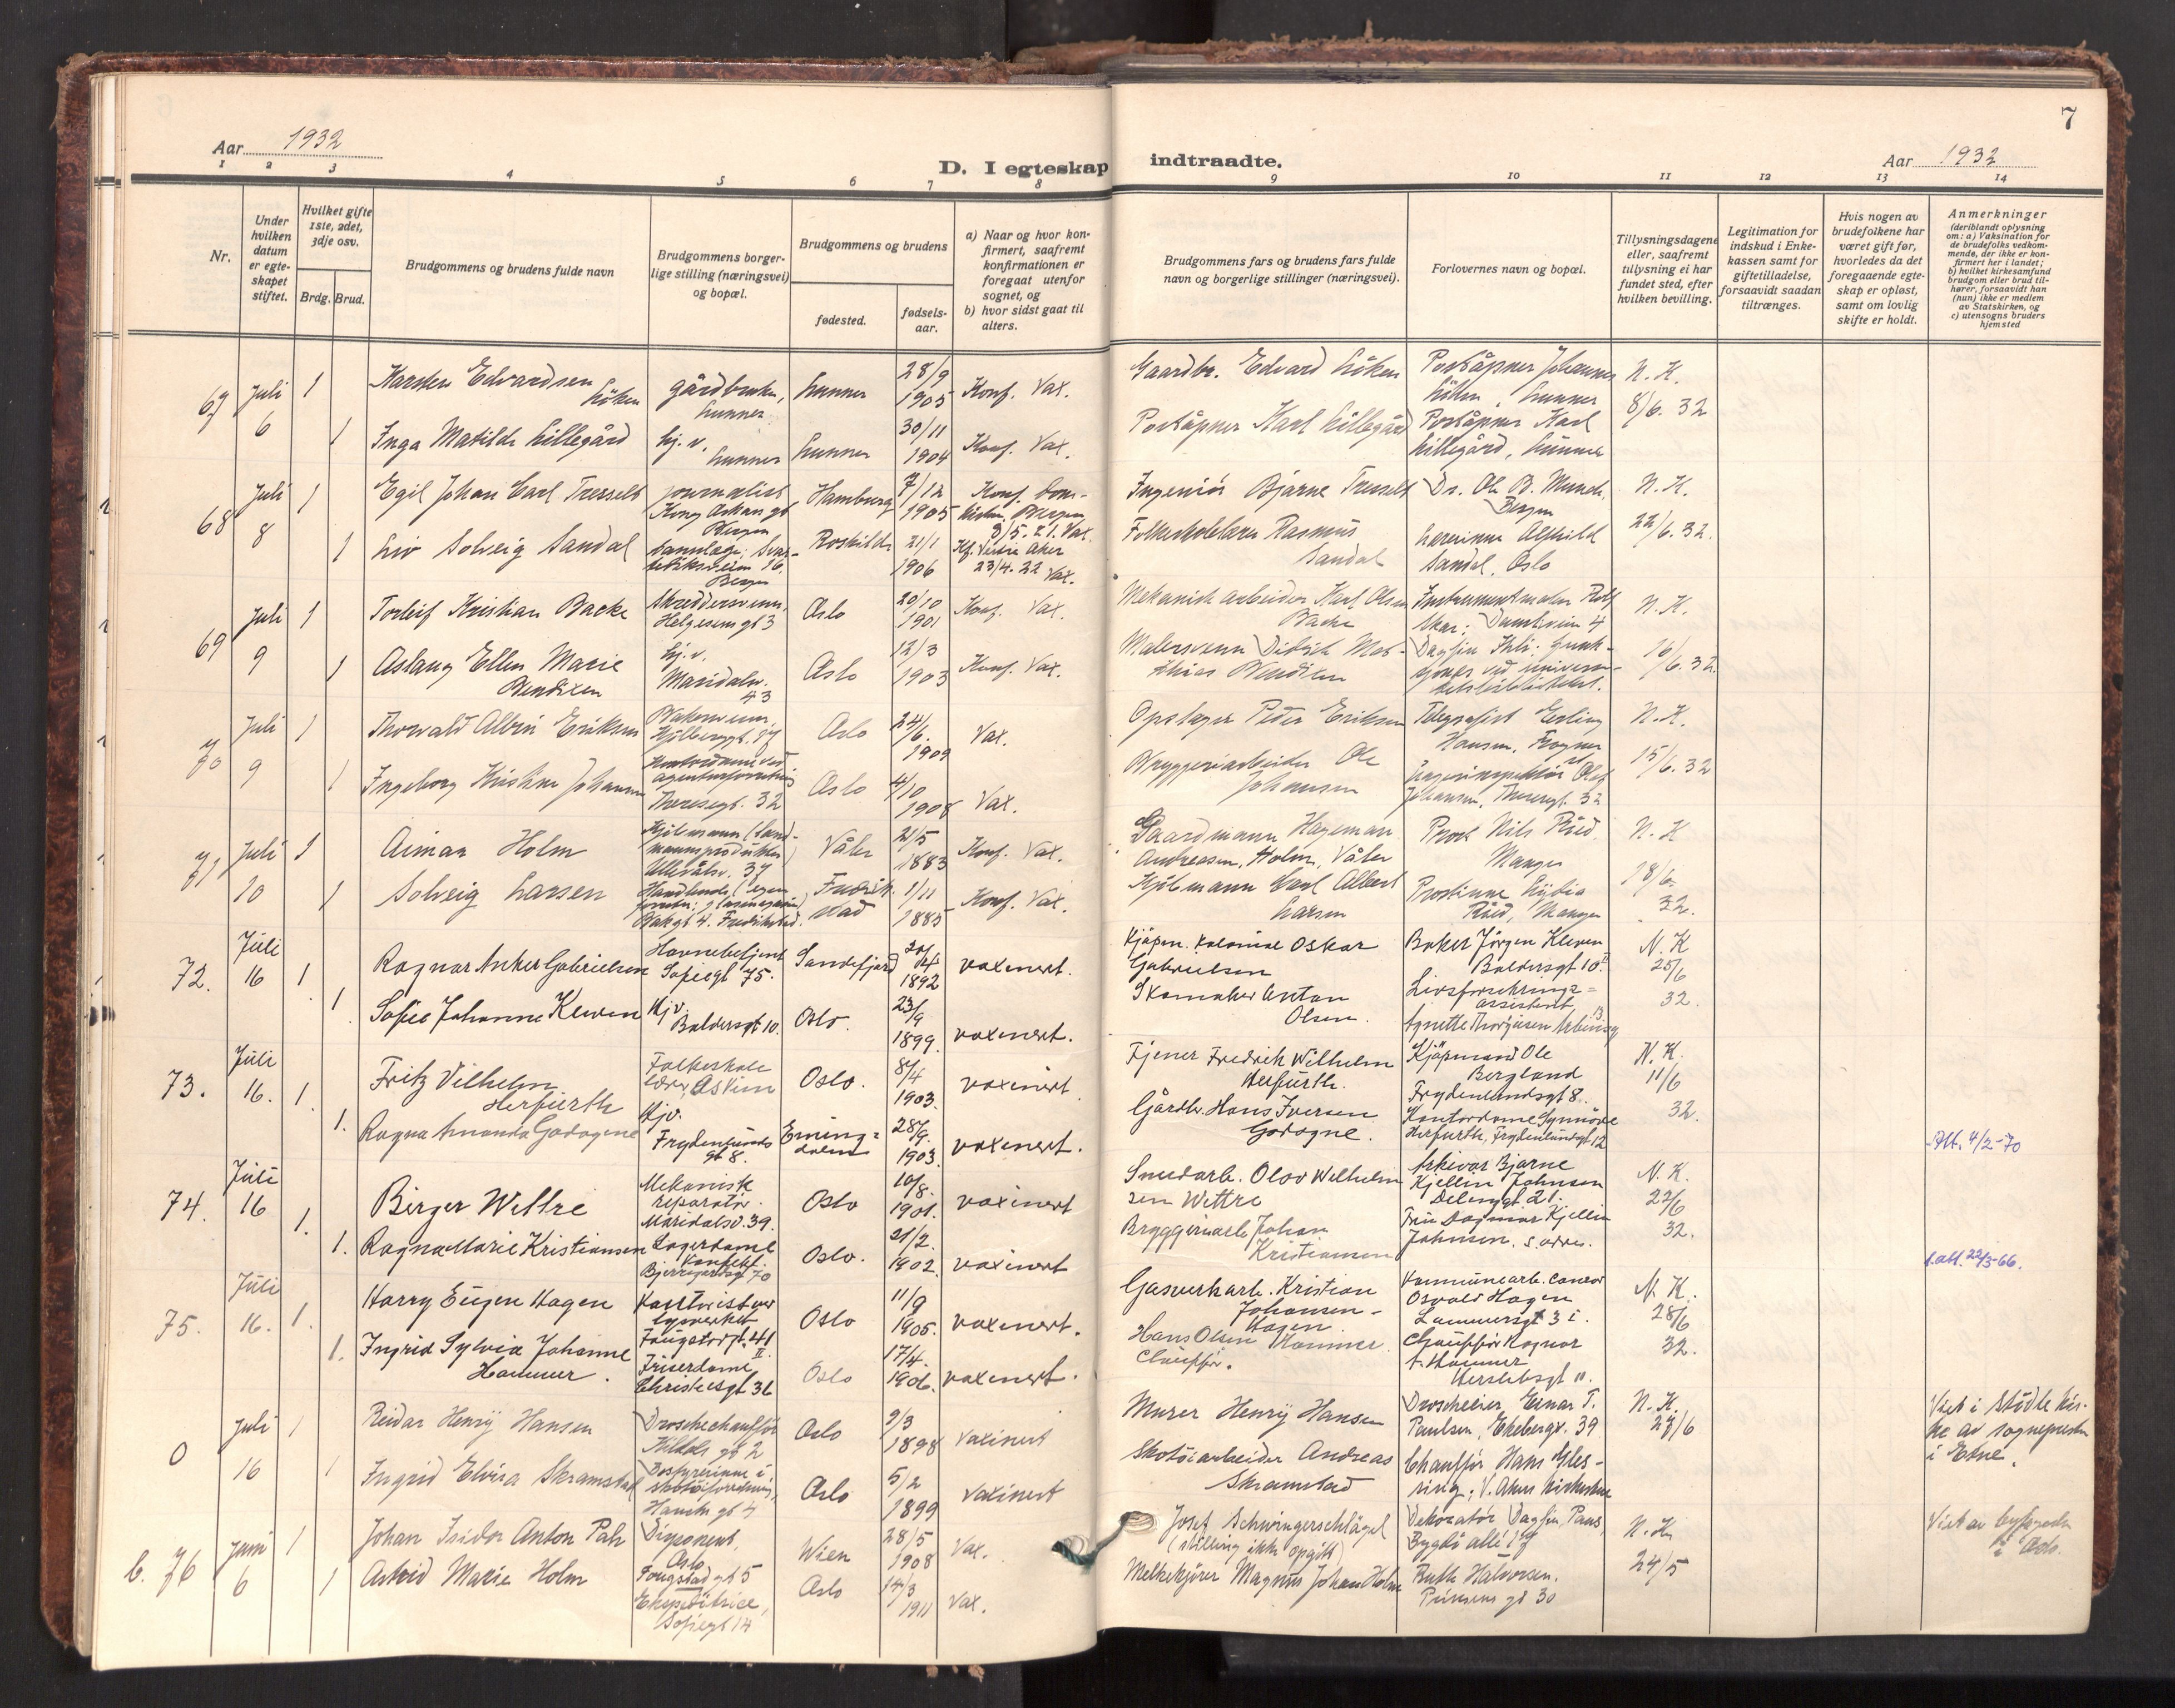 Aar 1932
D. I egteskap indtraadte.
Aar 1932
7
1 2 3 4 5 6 7 8 9 10 11 12 13 14
Nr.
Under hvilken datum er egteskapet stiftet.
Hvilket gifte 1ste, 2det, 3dje osv.
Brdg. Brud.
Brudgommens og brudens fulde navn
Brudgommens borgerlige stilling (næringsvei) og bopæl.
Brudgommens og brudens
fødested.
fødselsaar.
a) Naar og hvor konfirmert, saafremt konfirmationen er foregaat utenfor sognet, og
b) hvor sidst gaat til alters.
Brudgommens fars og brudens fars fulde navn og borgerlige stillinger (næringsvei).
Forlovernes navn og bopæl.
Tillysningsdagene eller, saafremt tillysning ei har fundet sted, efter hvilken bevilling.
Legitimation for indskud i Enkekassen samt for giftetilladelse, forsaavidt saadan tiltrænges.
Hvis nogen av brudefolkene har været gift før, hvorledes da det foregaaende egteskap er opløst, samt om lovlig skifte er holdt.
Anmerkninger
(deriblandt oplysning om: a) Vaksination for de brudefolks vedkommende, der ikke er konfirmert her i landet; b) hvilket kirkesamfund brudgom eller brud tilhører, forsaavidt han (hun) ikke er medlem av Statskirken, og c) utensogns bruders hjemsted
67 Juli 6 1 Karsten Edvardsen Löken gårdbruker, Lunner Lunner 28/9 1905 Konf. Vax. Gaardbr. Edvard Löken Poståpner Johannes Löken, Lunner N. K. 8/6. 32
1 Inga Matilde Lillegård hj. v. Lunner Lunner 30/11 1904 Konf. Vax. Poståpner Karl Lillegård Poståpner Karl Lillegård, Lunner
68 Juli 8 1 Egil Johan Carl Tresselt journalist Kong Oskars gt Bergen Hamburg 7/12 1905 Konf. Domkirken, Bergen 8/5. 21. Vax. Ingeniör Bjarne Tresselt Dr. Ole B. Munch. Bergen N. K. 22/6. 32.
1 Liv Solveig Sandal tannlæge; 16. Bergen Roskilde 21/1 1906 Kf. Vestre Aker 23/4. 22 Vax. Folkeskolelærer Rasmus Sandal Lærerinne Alfhild Sandal. Oslo
69 Juli 9 1 Torleif Kristian Backe Skreddersvenn, Helgesens gt 3 Oslo 20/10 1901 Konf. Vax. Mekanisk arbeider Karl Olsen Backe Instrumentmaker Rolf N. K. 16/6. 32.
1 Aslaug Ellen Marie Bendixen hj. v. Maridalsv. 43 Oslo 12/3 1903 Konf. Vax. Malersvenn Didrik Mathias Bendixen Dagfin ved universitetsbiblioteket.
70 Juli 9 1 Thorvald Albin Eriksen Bakersvenn, Oslo 24/6. 1909 Vax. Opslager Peder Eriksen Telegrafist Erling Hansen, Frogner N. K. 15/6. 32
1 Ingeborg Kristine Johansen Kontordame ved agenturforretning Theresegt. 32 Oslo 4/10 1908 Vax. Bryggeriarbeider Ole Johansen Olaf Johansen, Theresegt. 32
71 Juli 10 1 Aimar Holm Kjöbmann (landmannsprodukter) Ullevålsv. 37 Våler 21/5 1883 Konf. Vax. Gaardmann Hageman Andreasen, Holm, Våler Prost Nils Röed, Manger N. K. 18/6. 32.
1 Solveig Larsen Handlende (egen forretn.; glassmagasin) Bakgt 4. Fredrikstad. Fredrikstad 1/11 1885 Konf. Vax. Kjöbmann Carl Albert Larsen Prostinne Lydia Röed, Manger
72. Juli 16 1 Ragnar Anker Gabrielsen Havnebetjent Sofiesgt 75. Sandefjord 20/4 1892 vaxinert. Kjöpm. kolonial Oskar Gabrielsen Baker Jörgen Kleven Baldersgt 10. N. K. 25/6 32.
1. Sofie Johanne Kleven Hjv. Baldersgt 10. Oslo. 23/9 1899. vaxinert. Skomaker Anton Olsen. Livsforsikringsassistent Agnette Thorjusen
73. Juli 16. 1. Fritz Vilhelm Herfurth Folkeskolelærer, Askim Oslo. 8/4 1903. vaxinert Tjener Fredrik Wilhelm Herfurth. Kjöpmand Ole Bergland Frydenlundsgt 8. N. K. 11/6 32.
1. Ragna Amanda Godagne Hjv. Frydenlundsgt 8. 28/9. 1903. vaxinert. Gårdbr. Hans Iversen Godagne. Kontordame Synnöve Herfurth, Frydenlundsgt 12 Att. 4/2-70
74. Juli 16 1. Birger Wettre Mekanisk reparatör Maridalsv. 39. Oslo 10/8. 1901. vaxinert Smedarb. Olav Welhelmsen Wettre Arkivar Bjarne Kjellin Johnsen Delengt. 21. N. K. 22/6 32.
1. Ragna Marie Kristiansen Lagerdame konfekt. Bjerregaardsgt 70 Oslo. 21/2. 1902. vaxinert Bryggeriarb. Johan Kristiansen Fru Dagmar Kjellin Johnsen, s. adres. f. att. 22/3-66.
75. Juli 16. 1. Harry Eugen Hagen Kontorist ved lysverket Fougstadgt. 41 II. Oslo 11/9 1905. vaxinert. Gasverkarb. Kristian Johansen-Hagen Kommunearb. Osvald Hagen Lammersgt 3 i. N. K. 28/6 32.
1. Ingrid Sylvia Johanne Hammer. Friserdame, Christiesgt 36 Oslo 17/4. 1906. vaxinert. Hans Olsen Hammer. Chaufför. Chauffför Ragnar A. Hammer Herslebsgt 11.
0 Juli 16 1 Reidar Henry Hansen Droschechauffför Kildals gt 2 Oslo 2/3 1898 Vaxinert Murer Henry Hansen Droscheeier, Einar T. Paulsen, Ekebergv. 39 N. K. 27/6 Viet i Stödle kirke av sogneprest i Etne.
1 Ingrid Elvira Skramstad Bestyrerinne i skotöiforretning, gt 4 Oslo 5/2 1899 Vaxinert Skotöiarbeider Andreas Skramstad Chauffför Hans V. Akers Kirkevei
b. 76 Juni 6 1 Johan Isidor Anton Disponent, Oslo, Fougstad gt 5 Wien 28/5 1908 Vax. Josef Schwingerschlägel (stilling ikke opgitt) Dekoratör Dagfin Bygdö allé 17 N. K. 24/5 Viet av byfogden i Oslo.
1 Astrid Marie Holm Ekspeditrice, Sofiegt 14 Oslo 14/3 1911 Vax. Melkekjörer Magnus Johan Holm Ruth Halvorsen. Prinsens gt 30